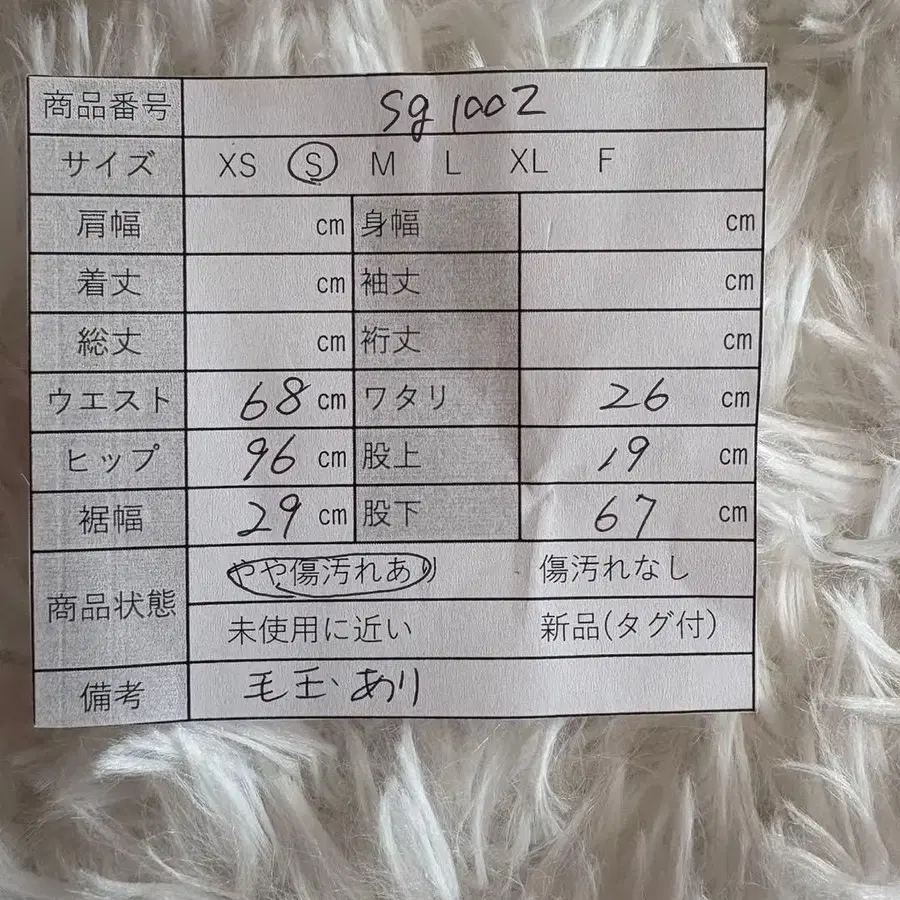 商品番号 sg1002
サイズ XS S M L XL F
肩幅 cm 身幅 cm
着丈 cm 袖丈 cm
総丈 cm 裄丈 cm
ウエスト 68 cm ワタリ 26 cm
ヒップ 96 cm 股上 19 cm
裾幅 29 cm 股下 67 cm
商品状態 やや傷汚れあり 傷汚れなし
未使用に近い 新品(タグ付)
備考 毛玉あり